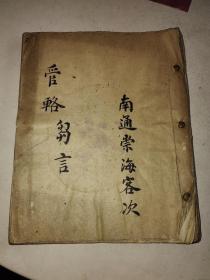 南通崇海客次
管輅芻言